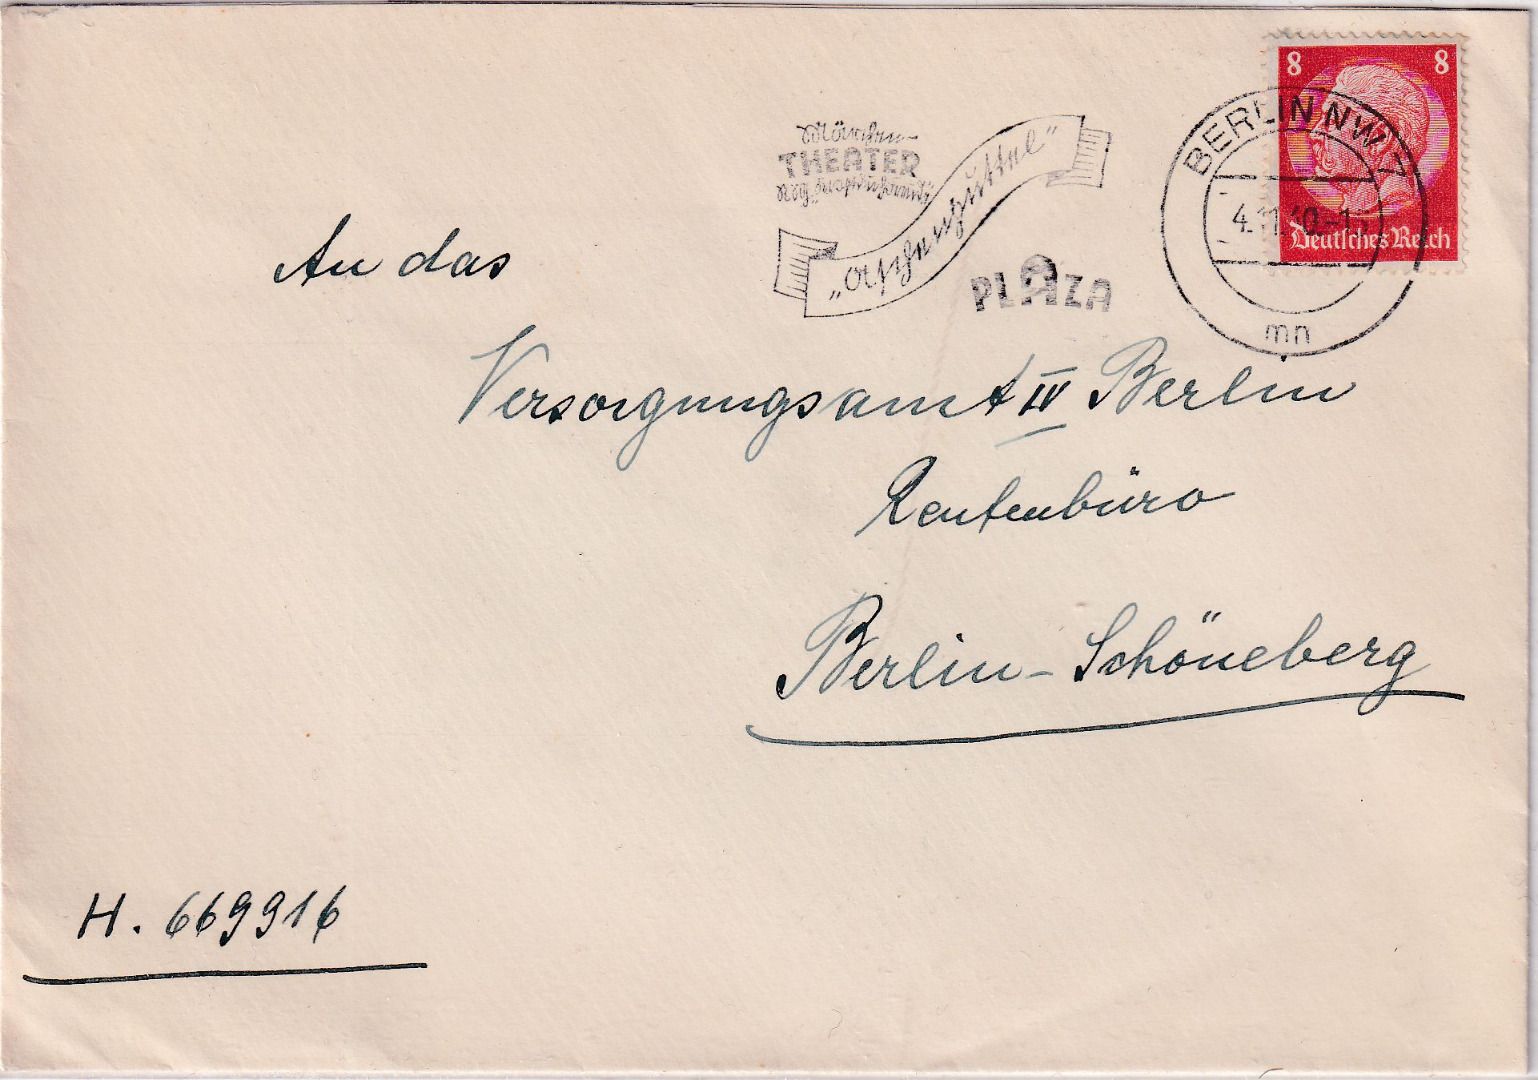 8 8
Deutsches Reich
BERLIN NW 7
4.11.40.-1
mn
Märchen-
THEATER
„Aschenputtel"
PLAZA
An das
Versorgungsamt IV Berlin
Rentenbüro
Berlin-Schöneberg
H. 669916